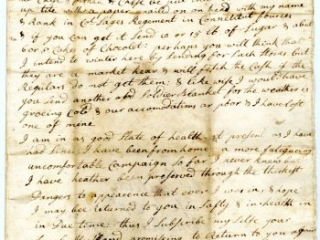 with my name
& Rank in Col. Sages Regement in Connecticut forces
& if you can get it Send 10 or 15 lb of Sugar & abut
6 or 8 Cakes of Chocolet perhaps you will think that
I intend to winter here by Sending for Such Stores but
they are a market hear & will fetch the Cash if the
Regulars do not get them & like wise I would have
you Send another old Soldiers blanket for the weather is
growing Cold & our accomodations ar poor & I have lost
one of mine
I am in as good State of health at present as I have
had Since I have been from home a more fatigueing
uncomfortable Campaign so far I never knew but
I have heather been preserved through the thickest
Dangers to apparence that ever I was in, & hope
I may be returned to you in Safty & in health in
in Due time thus I Subscribe my Selfe your
promising to Return to you again